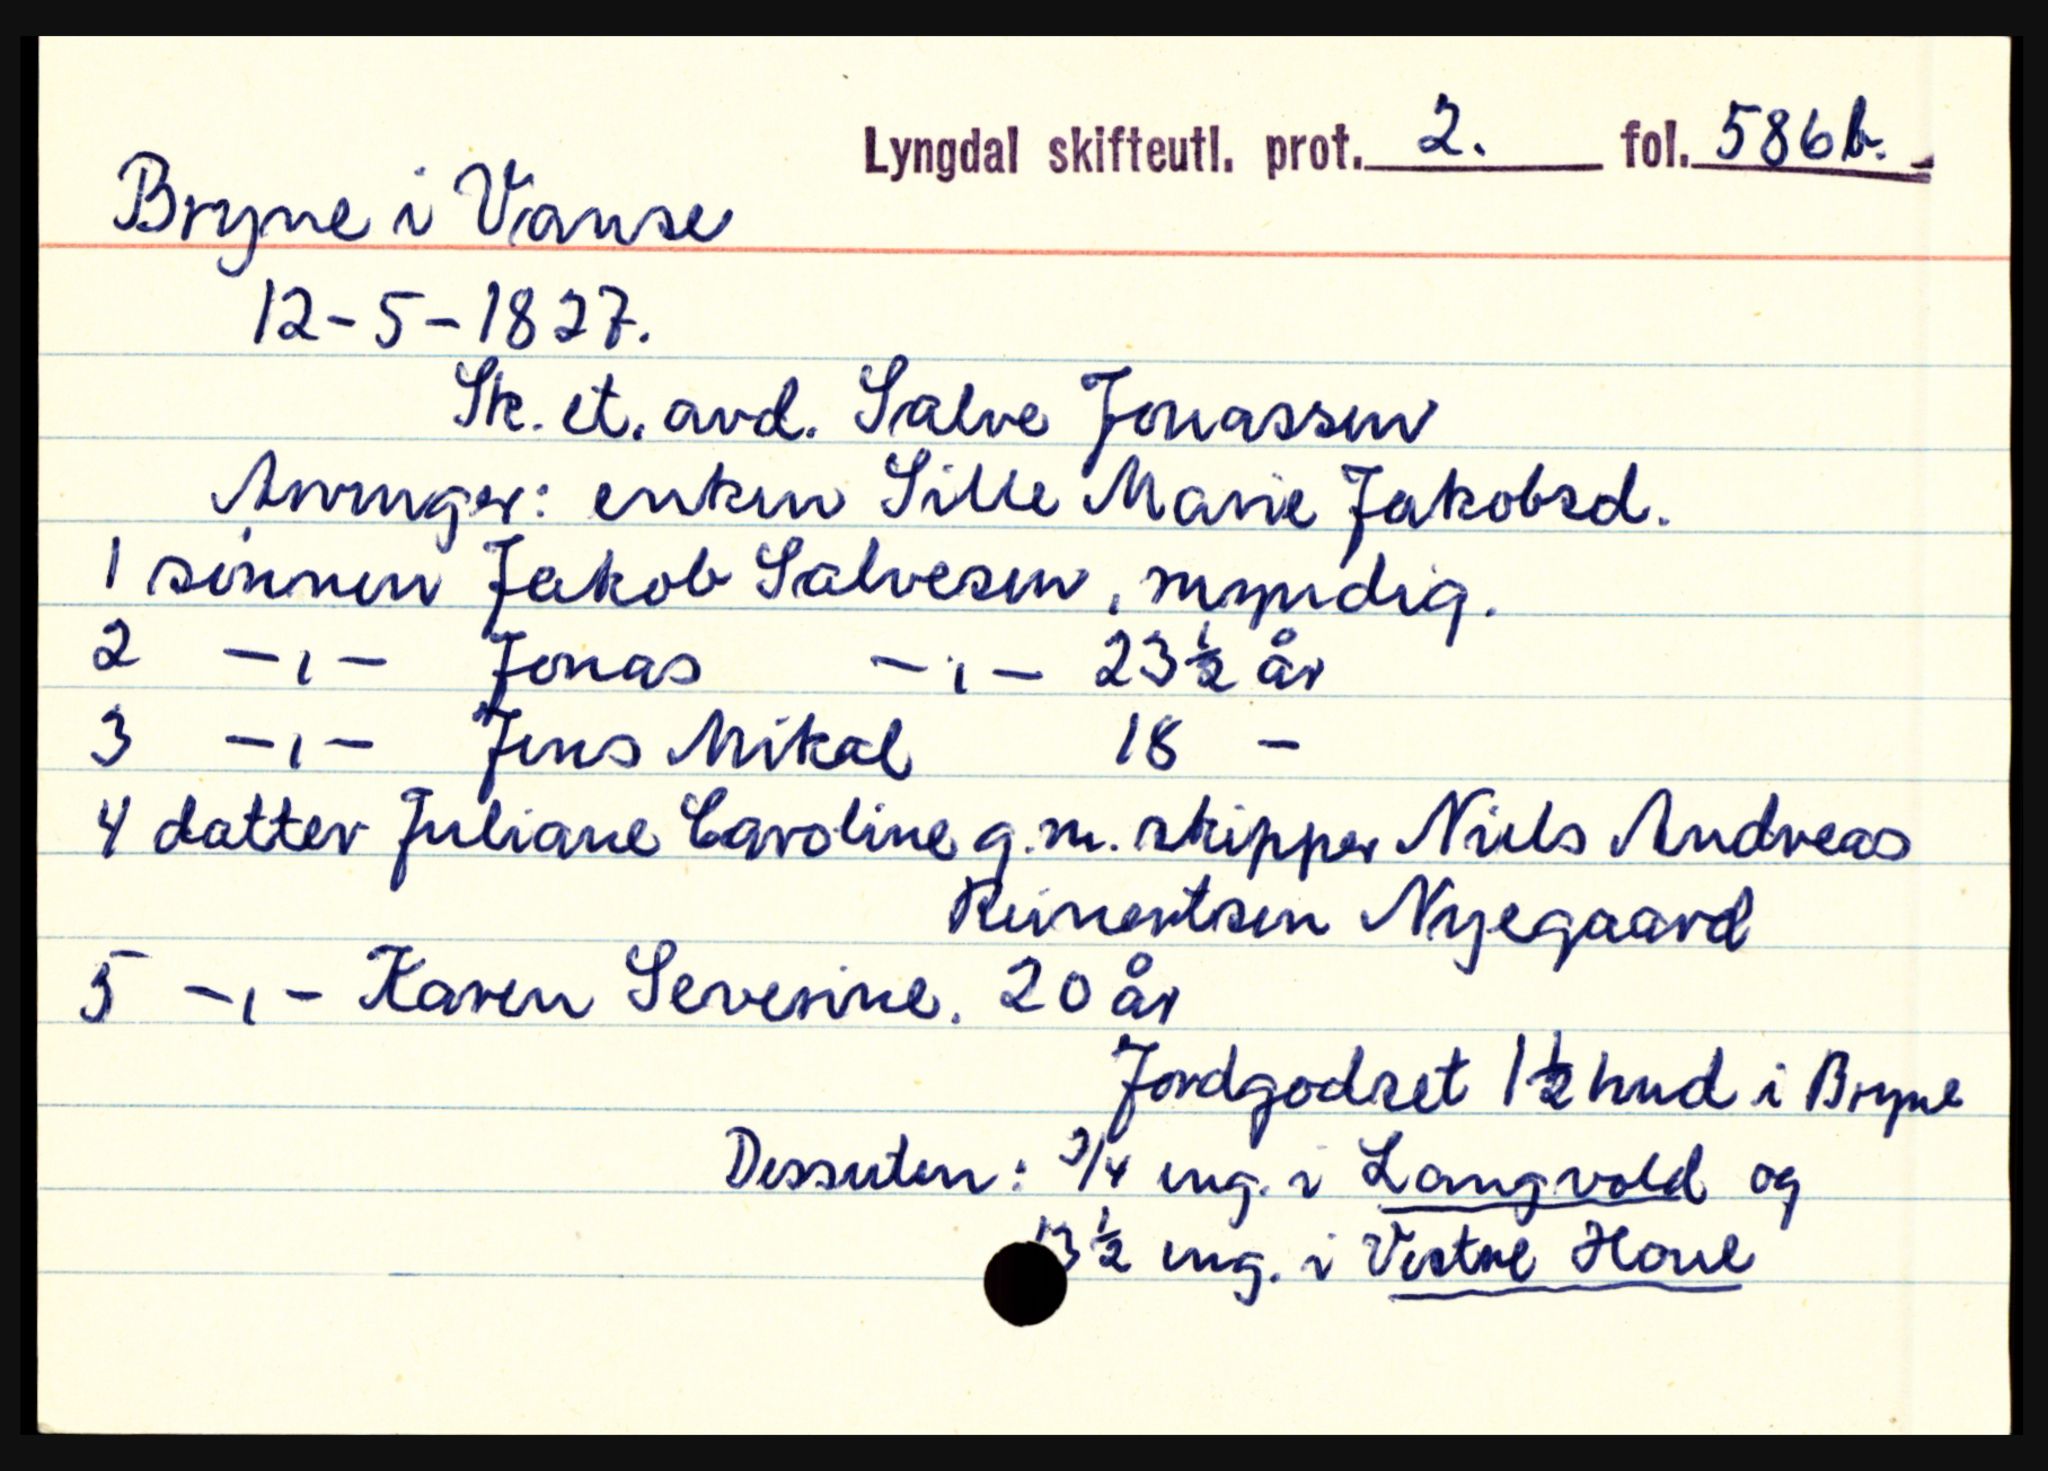 Lyngdal skifteutl. prot. 2. fol. 586b.
Bryne i Vanse
12-5-1827.
Sk. et. avd. Salve Jonassen
Arvinger: enken Sille Marie Jakobsd.
1 sønnen Jakob Salvesen, myndig.
2 -,- Jonas -,- 23 1/2 år
3 -,- Jens Mikal 18 -
4 datter Juliane Caroline g.m. skipper Niels Andreas
Reinertsen Nyegaard
5 -,- Karen Severine. 20 år
Jordgodset 1 1/2 hud i Bryne
Dessuten: 3/4 eng. i Langvold og
13 1/2 eng. i Vestre Houe